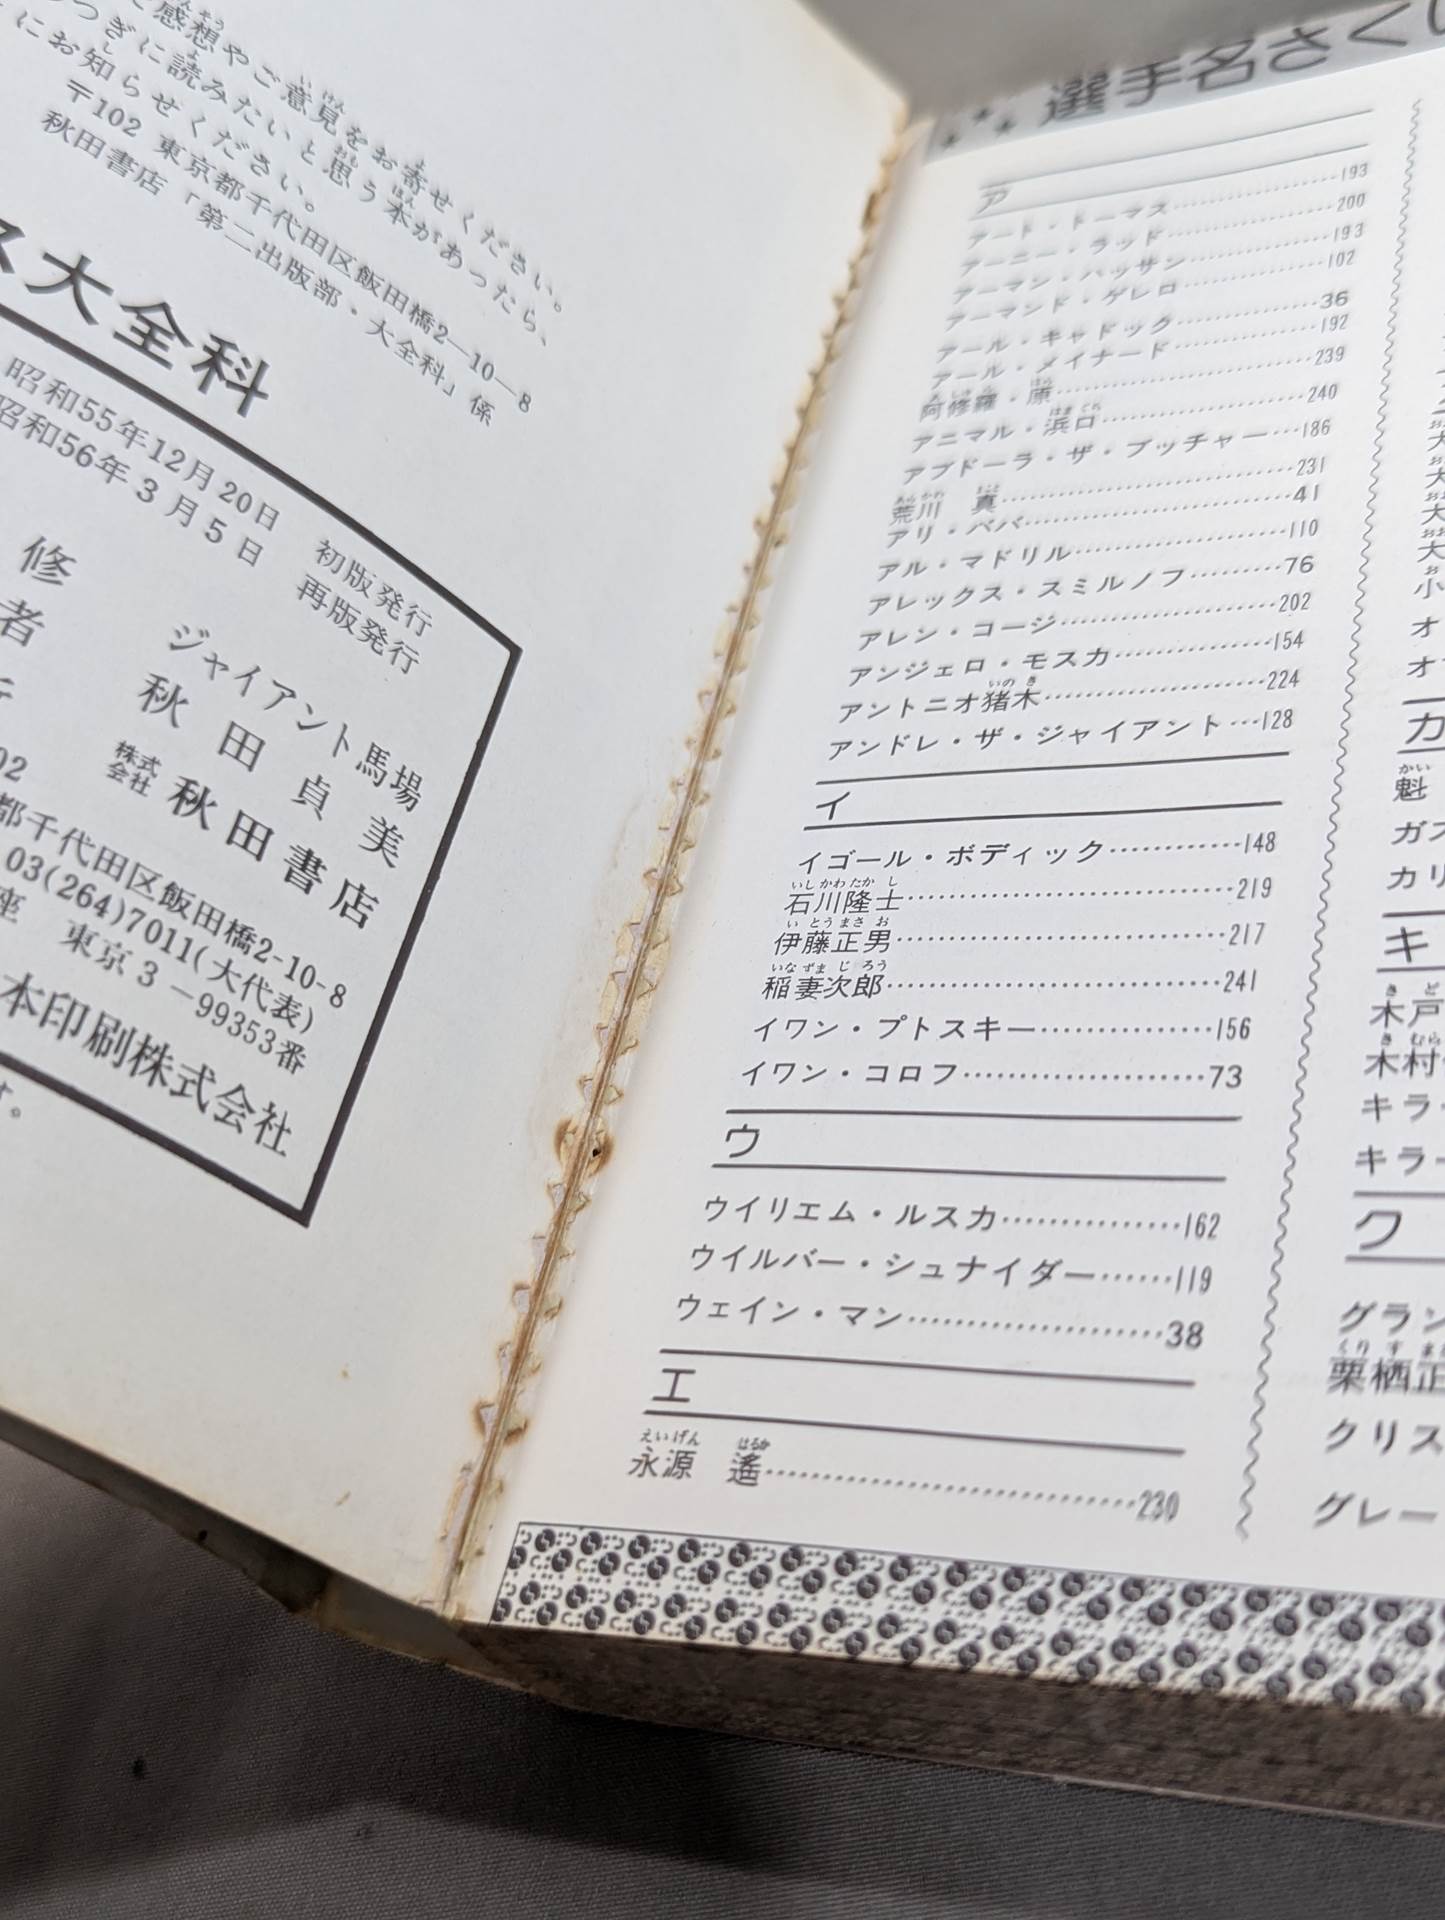 感想やご意見をお寄せください。
つぎに読みたいと思う本があったら、
にお知らせください。
〒102 東京都千代田区飯田橋2―10―8
秋田書店「第二出版部・大全科」係
ス大全科
昭和55年12月20日 初版発行
昭和56年3月5日 再版発行
修 ジャイアント馬場
者 秋田貞美
株式会社 秋田書店
都千代田区飯田橋2-10-8
03(264)7011(大代表)
座 東京3―99353番
本印刷株式会社
す。
選手名さく
ア
アート・トーマス…………193
アーニー・ラッド…………200
アーマン・ハッサン…………193
アーマンド・ゲレロ…………102
アール・キャドック…………36
アール・メイナード…………192
阿修羅・原…………239
アニマル・浜口…………240
アブドーラ・ザ・ブッチャー…186
荒川 真…………231
アリ・ババ…………41
アル・マドリル…………110
アレックス・スミルノフ………76
アレン・コージ…………202
アンジェロ・モスカ…………154
アントニオ猪木…………224
アンドレ・ザ・ジャイアント…128
イ
イゴール・ボディック…………148
石川隆士…………219
伊藤正男…………217
稲妻次郎…………241
イワン・プトスキー…………156
イワン・コロフ…………73
ウ
ウイリエム・ルスカ…………162
ウイルバー・シュナイダー……119
ウェイン・マン…………38
エ
永源 遙…………230
カ
魁
ガス
カリ
キ
木戸
木村
キラ
キラー
ク
グラン
栗栖正
クリス
グレー